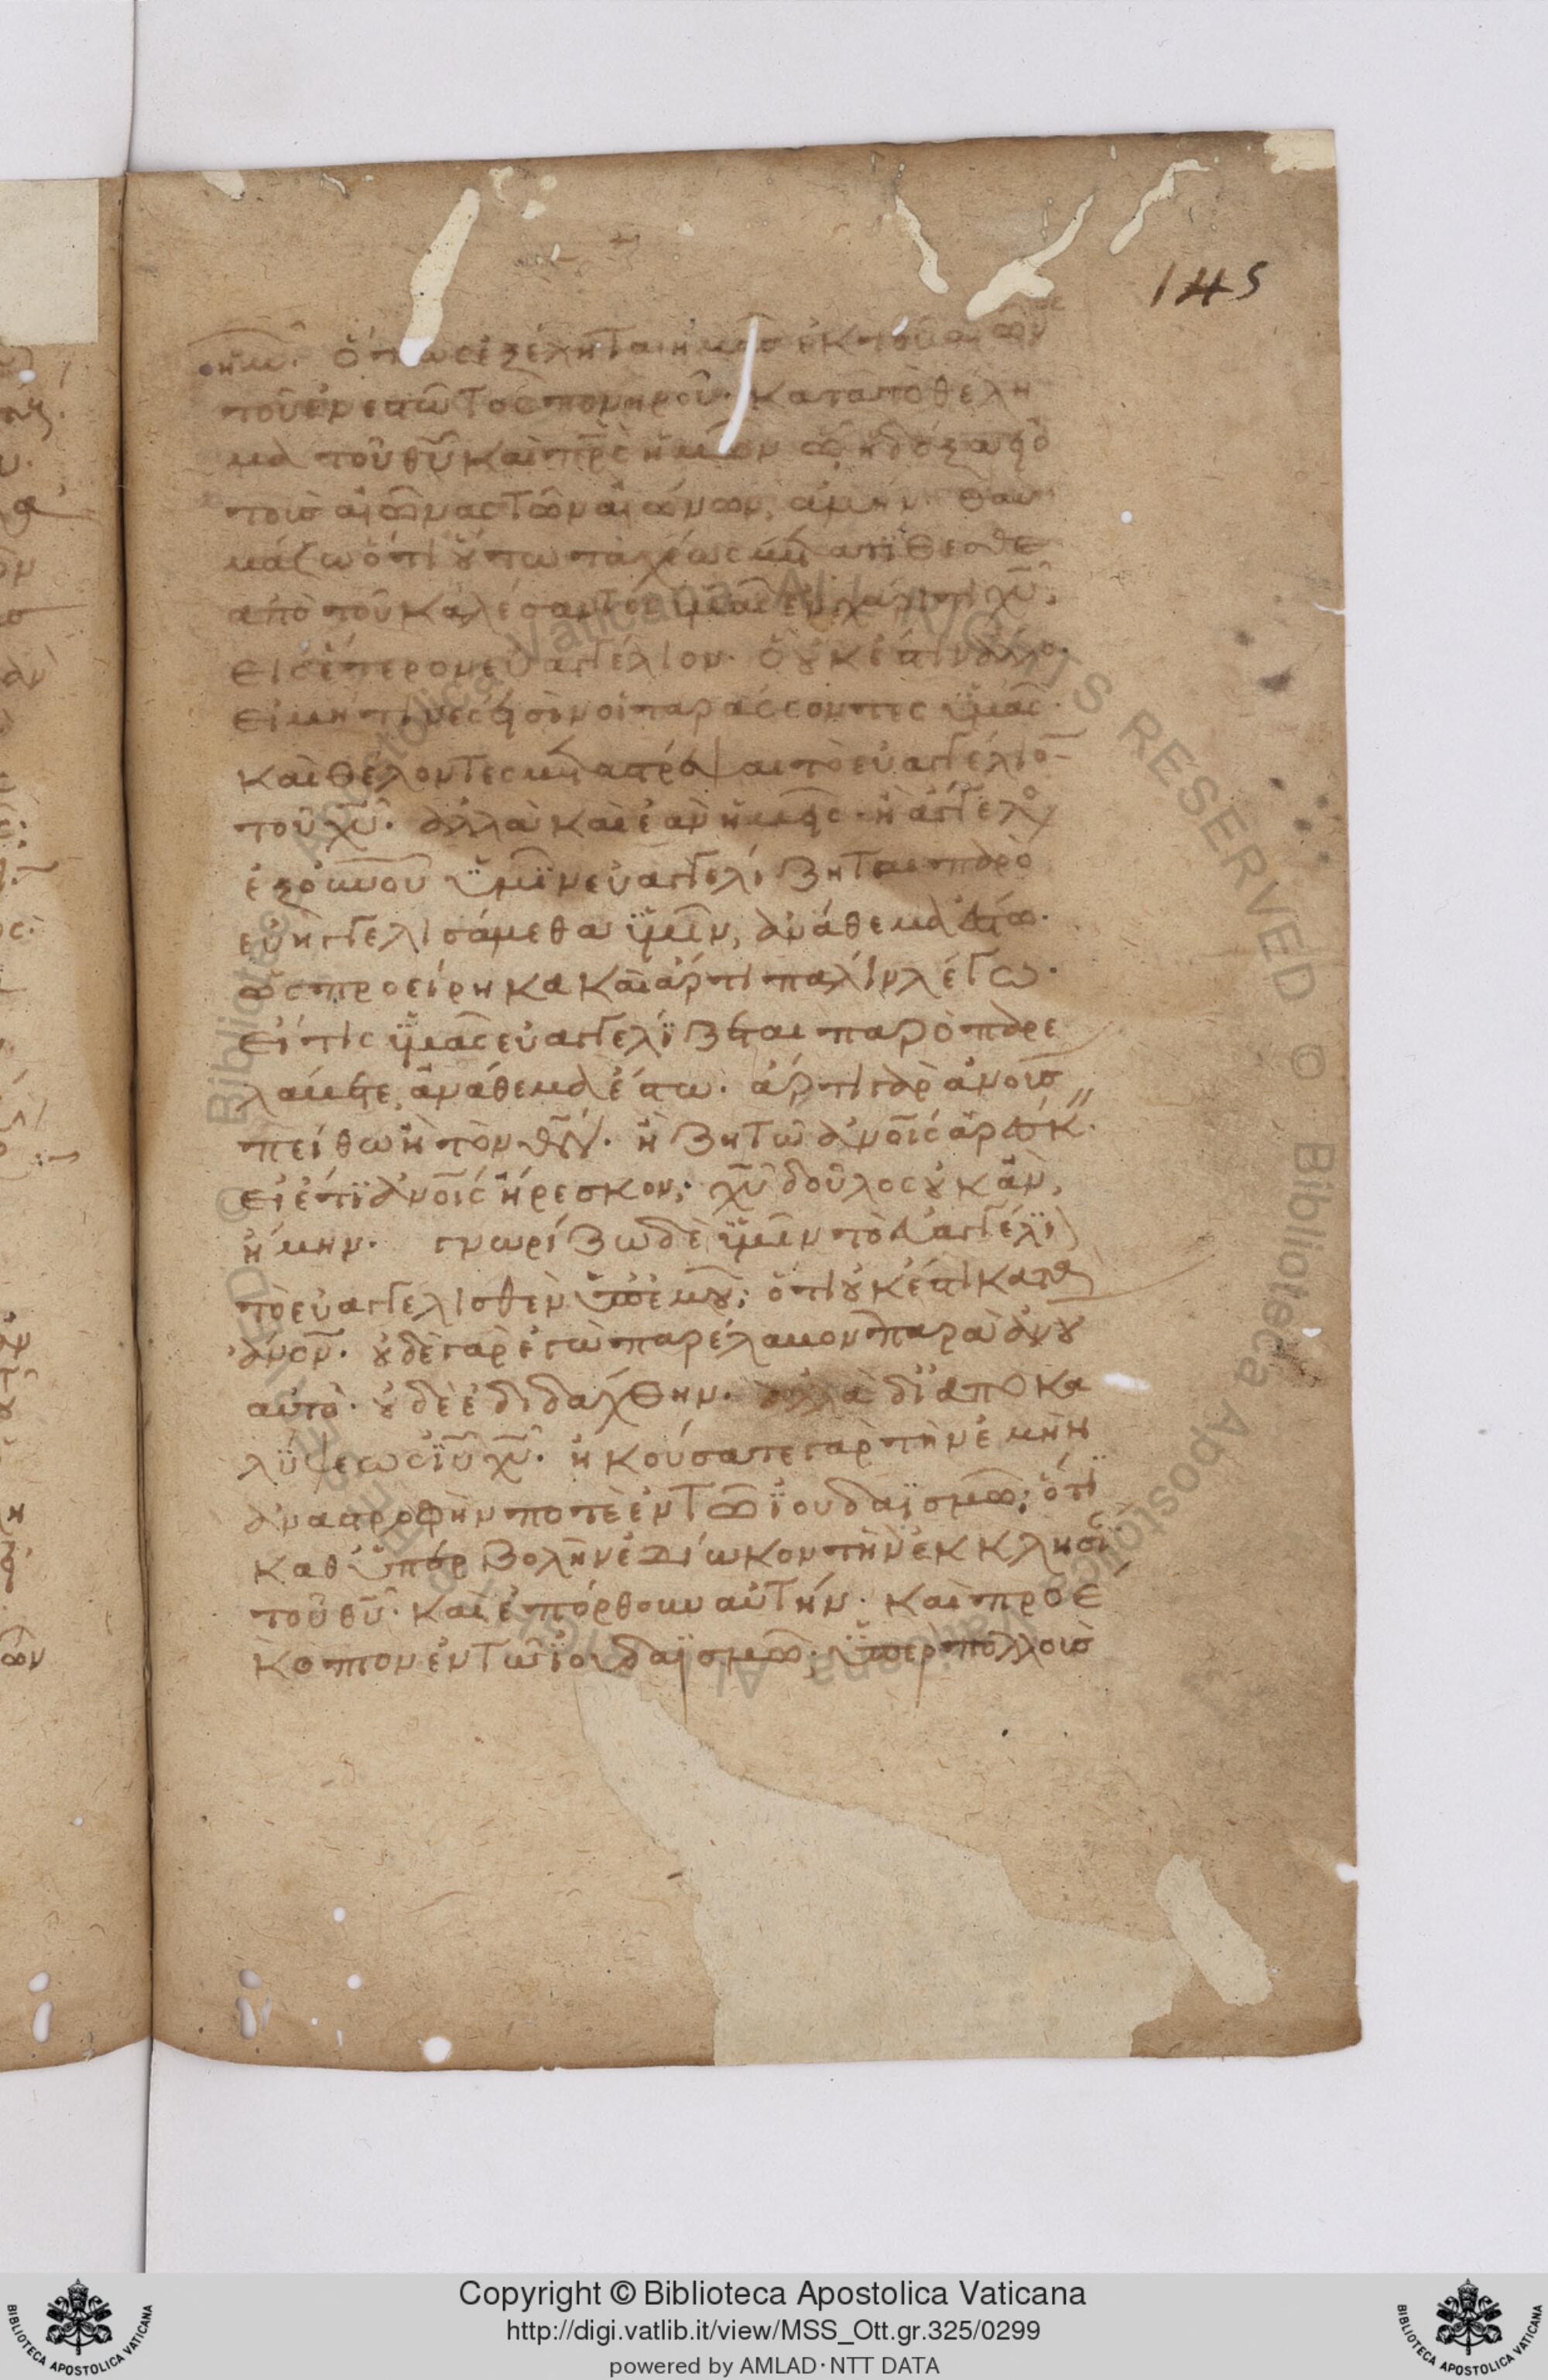 145
ἡμῶ. ὅπως ἐξέληται ἡμᾶς ἐκ τοῦ αἰῶν
τοῦ ἐνεστῶτος πονηροῦ. κατὰ τὸ θέλη
μα τοῦ θυ καὶ πρς ἡμῶν ὧ ἡ δόξα εἰς
τοὺς αἰῶνας τῶν αἰώνων, ἀμήν. θαυ
μάζω ὅτι οὕτω ταχέως μετατίθεσθε
ἀπὸ τοῦ καλέσαντος ὑμᾶς ἐν χάριτι χυ,
εἰς ἕτερον εὐαγγέλιον. ὃ οὐκ ἔστιν ἄλλο.
εἰ μή τινές εἰσιν οἱ ταράσσοντες ὑμᾶς.
καὶ θέλοντες μεταστρέψαι τὸ εὐαγγέλιο
τοῦ χυ. ἀλλὰ καὶ ἐὰν ἡμεῖς. ἢ ἄγγελο
ἐξ οὐνου ὑμῖν εὐαγγελίζηται παρ ὃ
εὐηγγελισάμεθα ὑμῖν, ἀνάθεμα ἔστω.
ὡς προείρηκα καὶ ἄρτι πάλιν λέγω.
εἴ τις ὑμᾶς εὐαγγελίζεται παρ ὃ παρε
λάβετε, ἀνάθεμα ἔστω. ἄρτι γὰρ ἀνοις
πείθω ἢ τὸν θν. ἢ ζητῶ ἀνοις ἀρέσκ.
εἰ ἔτι ἀνοις ἤρεσκον, χυ δοῦλος οὐκ ἂν,
ἤμην. γνωρίζω δὲ ὑμῖν τὸ εὐαγγέλι
τὸ εὐαγγελισθὲν ὑπ ἐμοῦ, ὅτι οὐκ ἔστι κατὰ
ἄνον. οὐδὲ γὰρ ἐγὼ παρέλαβον παρὰ ἀνου
αὐτὸ. οὐδὲ ἐδιδάχθην. ἀλλὰ δι ἀποκα
λύψεως ιυ χυ. ἠκούσατε γὰρ τὴν ἐμὴν
ἀναστροφήν ποτε ἐν τῶ ἰουδαϊσμῶ, ὅτι
καθ ὑπερβολὴν ἐδίωκον τὴν ἐκκλησί
τοῦ θυ. καὶ ἐπόρθουν αὐτήν. καὶ προέ
κοπτον ἐν τῶ ἰουδαϊσμῶ. ὑπὲρ πολλοὺς
Copyright © Biblioteca Apostolica Vaticana
http://digi.vatlib.it/view/MSS_Ott.gr.325/0299
powered by AMLAD·NTT DATA